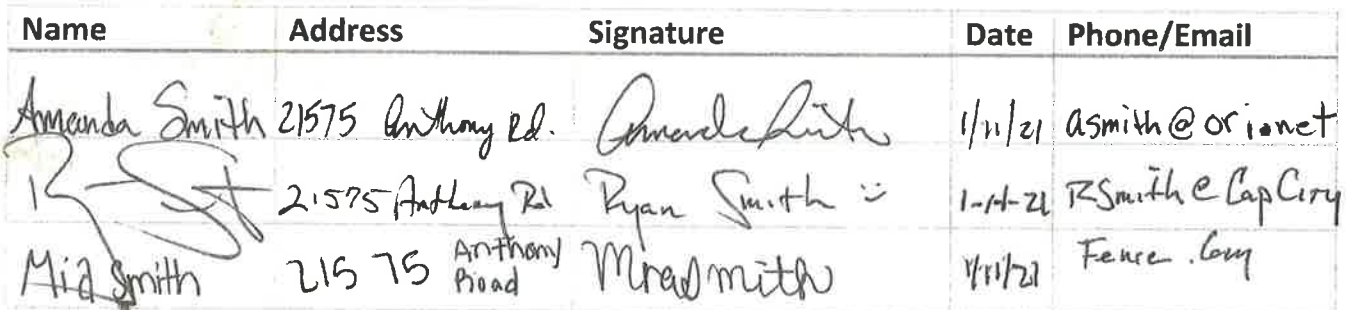 Name Address Signature Date Phone/Email
Amanda Smith 21575 Anthony Rd. Amanda Smith 1/11/21 asmith@ori.net
21575 Anthony Rd Ryan Smith 1-11-21 RSmith@CapCity
Mia Smith 21575 Anthony Road Mia Smith 1/11/21 Fence.Com